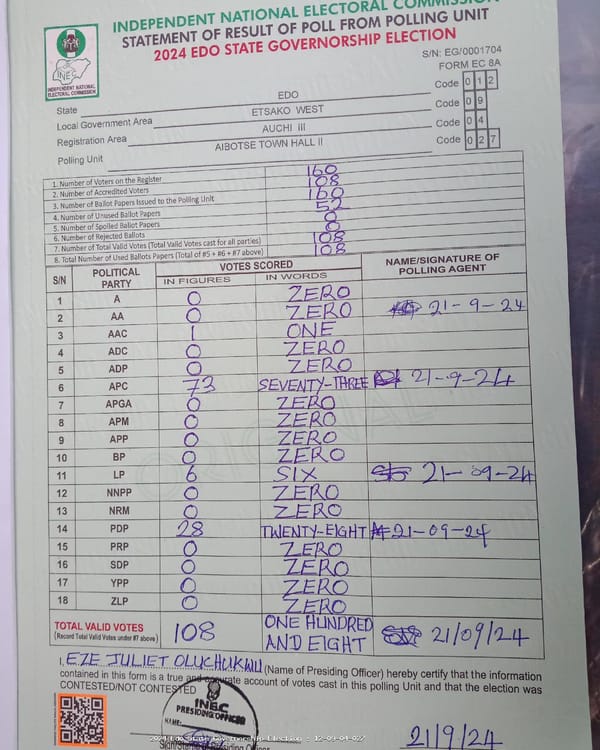 INDEPENDENT NATIONAL ELECTORAL COMMISSION
STATEMENT OF RESULT OF POLL FROM POLLING UNIT
2024 EDO STATE GOVERNORSHIP ELECTION
INEC
INDEPENDENT NATIONAL
ELECTORAL COMMISSION
S/N: EG/0001704
FORM EC 8A
State EDO Code 0 1 2
Local Government Area ETSAKO WEST Code 0 9
Registration Area AUCHI III Code 0 4
Polling Unit AIBOTSE TOWN HALL II Code 0 2 7
1. Number of Voters on the Register 160
2. Number of Accredited Voters 108
3. Number of Ballot Papers Issued to the Polling Unit 160
4. Number of Unused Ballot Papers 52
5. Number of Spoiled Ballot Papers 0
6. Number of Rejected Ballots 0
7. Number of Total Valid Votes (Total Valid Votes cast for all parties) 108
8. Total Number of Used Ballots Papers (Total of #5 + #6 + #7 above) 108
S/N POLITICAL PARTY VOTES SCORED NAME/SIGNATURE OF POLLING AGENT
IN FIGURES IN WORDS
1 A 0 ZERO
2 AA 0 ZERO 21-9-24
3 AAC 1 ONE
4 ADC 0 ZERO
5 ADP 0 ZERO
6 APC 73 SEVENTY-THREE 21-9-24
7 APGA 0 ZERO
8 APM 0 ZERO
9 APP 0 ZERO
10 BP 0 ZERO
11 LP 6 SIX 21-09-24
12 NNPP 0 ZERO
13 NRM 0 ZERO
14 PDP 28 TWENTY-EIGHT 21-09-24
15 PRP 0 ZERO
16 SDP 0 ZERO
17 YPP 0 ZERO
18 ZLP 0 ZERO
TOTAL VALID VOTES 108 ONE HUNDRED AND EIGHT 21/09/24
(Record Total Valid Votes under #7 above)
I, EZE JULIET OLUCHUKWU (Name of Presiding Officer) hereby certify that the information
contained in this form is a true and accurate account of votes cast in this polling Unit and that the election was
CONTESTED/NOT CONTESTED
INEC
PRESIDING OFFICER
NAME:
2024 Edo State Governorship Election - 12-09-04-027
Signature of Presiding Officer
21/9/24